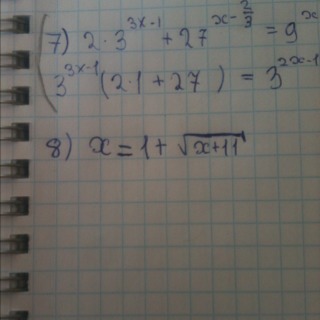 7) 2·3^{3x-1} + 27^{x-\frac{2}{3}} = 9^{x}
3^{3x-1} (2·1 + 27 ) = 3^{2x-1}
8) x = 1 + \sqrt{x+11}